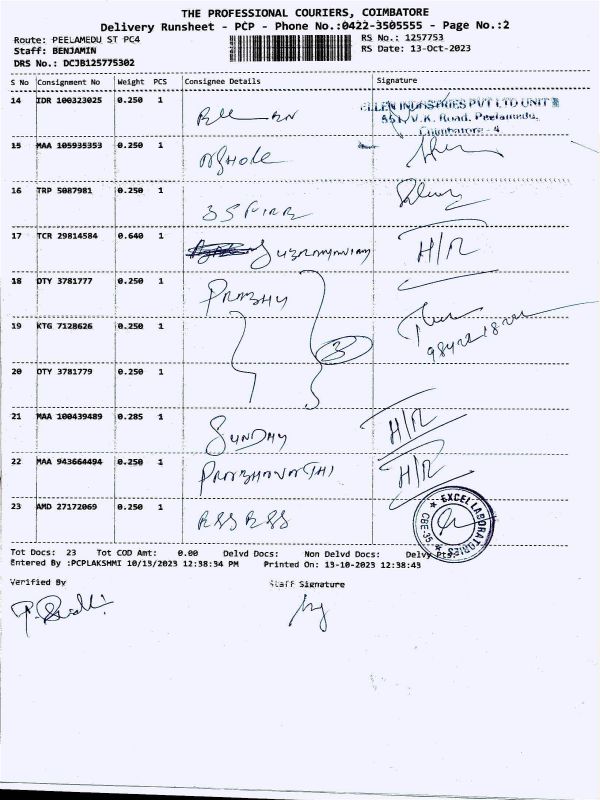 THE PROFESSIONAL COURIERS, COIMBATORE
Delivery Runsheet - PCP - Phone No.:0422-3505555 - Page No.:2
Route: PEELAMEDU ST PC4
RS No.: 1257753
Staff: BENJAMIN
RS Date: 13-Oct-2023
DRS No.: DCJB125775302
S No Consignment No Weight PCS Consignee Details Signature
14 IDR 100323025 0.250 1
ELLEN INDUSTRIES PVT LTD UNIT II
551, V.K. Road, Peelamedu,
Coimbatore - 4
15 MAA 105935353 0.250 1 ASHOK
16 TRP 5087981 0.250 1
17 TCR 29814584 0.640 1 SUBRAMANIAM H/R
18 DTY 3781777 0.250 1 PRABHU
19 KTG 7128626 0.250 1 3
20 DTY 3781779 0.250 1
21 MAA 100439489 0.285 1 SUNDAY H/R
22 MAA 943664494 0.250 1 PRABHAVATHI H/R
23 AMD 27172069 0.250 1
EXCEL LABORATORIES
CBE-35
Tot Docs: 23 Tot COD Amt: 0.00 Delvd Docs: Non Delvd Docs: Delvy Pts:
Entered By :PCPLAKSHMI 10/13/2023 12:38:34 PM Printed On: 13-10-2023 12:38:43
Verified By Staff Signature